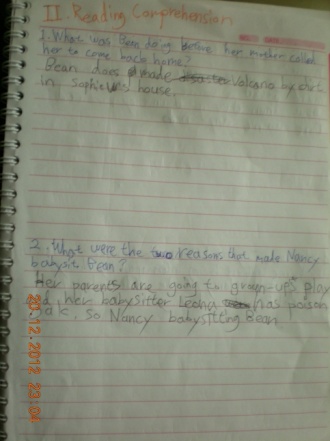 II. Reading Comprehension
1. What was Bean doing before her mother called
her to come back home?
Bean does made volcano by dirt
in Sophie's house.
2. What were the two reasons that made Nancy
babysit Bean?
Her parents are going to grown-ups play
and her babysitter Leona has poison
oak, so Nancy babysitting Bean
20.12.2012 23:04